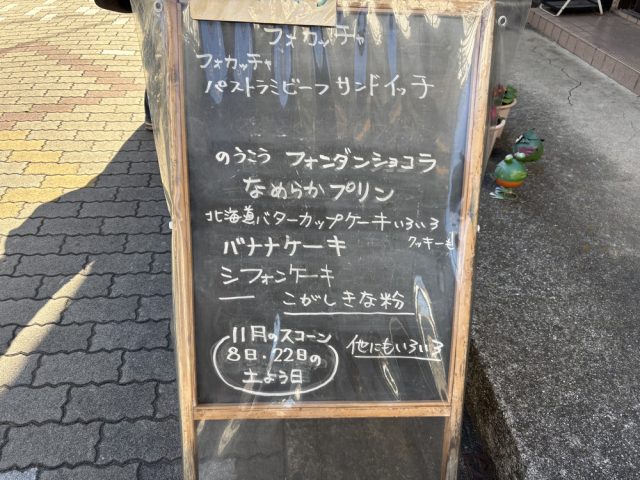 フォカッチャ
フォカッチャ
パストラミビーフサンドイッチ
のうこう フォンダンショコラ
なめらかプリン
北海道バターカップケーキいろいろ
クッキーも
バナナケーキ
シフォンケーキ
こがしきな粉
11月のスコーン
8日・22日の
土よう日
他にもいろいろ